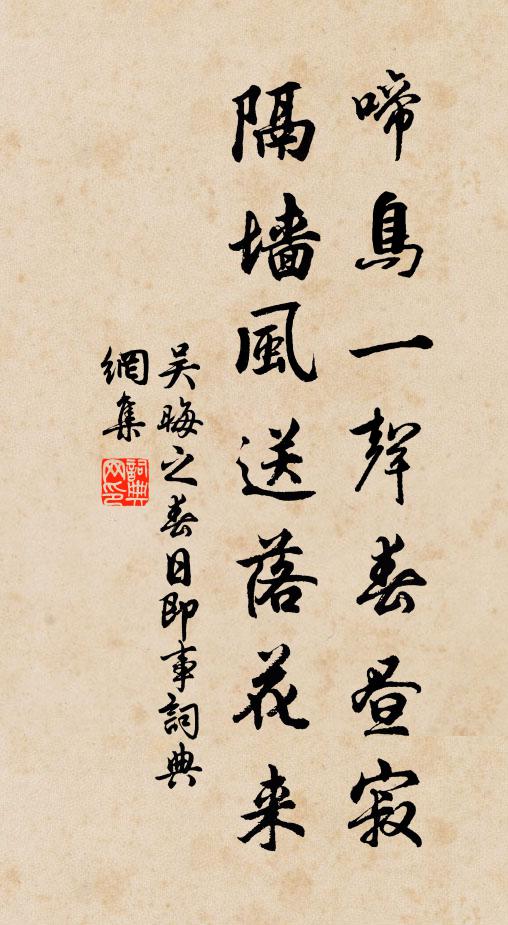 啼鳥一聲春昼寂
隔墻風送落花来
吴晦之春日即事詞典
網集
詞典
网印